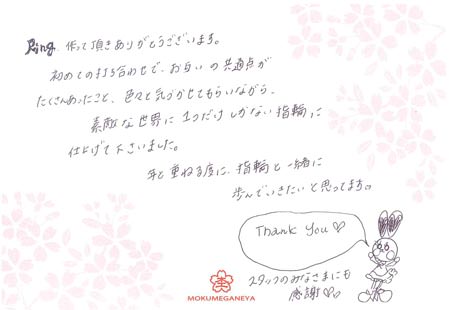 Ring 作って頂きありがとうございます。
初めての打ち合わせで、お互いの共通点が
たくさんあったこと、色々と気づかせてもらいながら、
素敵な世界に1つだけしかない指輪に
仕上げて下さいました。
年と重ねる度に、指輪と一緒に
歩んでいきたいと思ってます。
Thank You♡
スタッフのみなさまにも
感謝♡♡
MOKUMEGANEYA